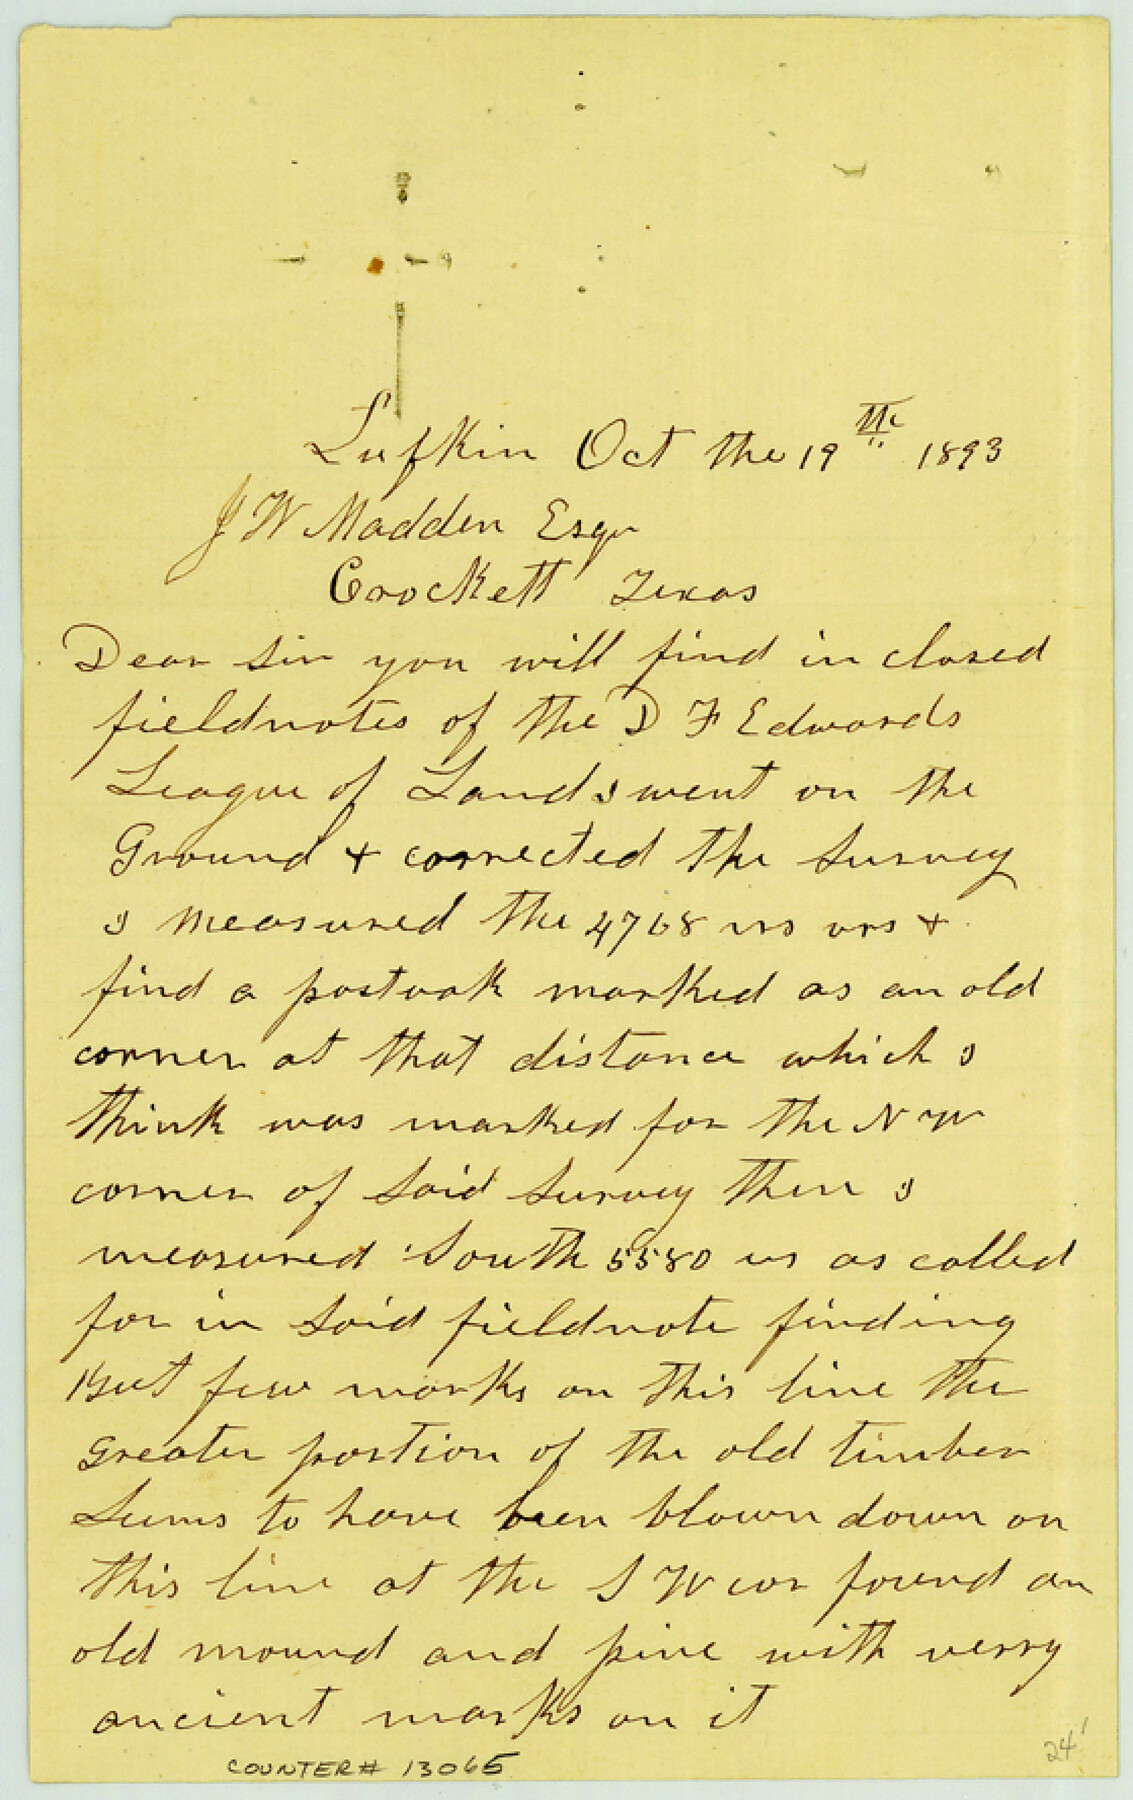 Lufkin Oct the 19th 1893
J W Madden Esqr
Crockett Texas
Dear Sir you will find in closed
fieldnotes of the D F Edwards
League of Land I went on the
Ground + corrected the Survey
I measured the 4768 vrs vrs +
find a postoak marked as an old
corner at that distance which I
think was marked for the N W
corner of Said Survey then I
measured South 5580 vrs as called
for in Said fieldnote finding
But few marks on this line the
Greater portion of the old timber
Sums to have been blown down on
this line at the S W cor found an
old mound and pine with verry
ancient marks on it
COUNTER# 13065
24'